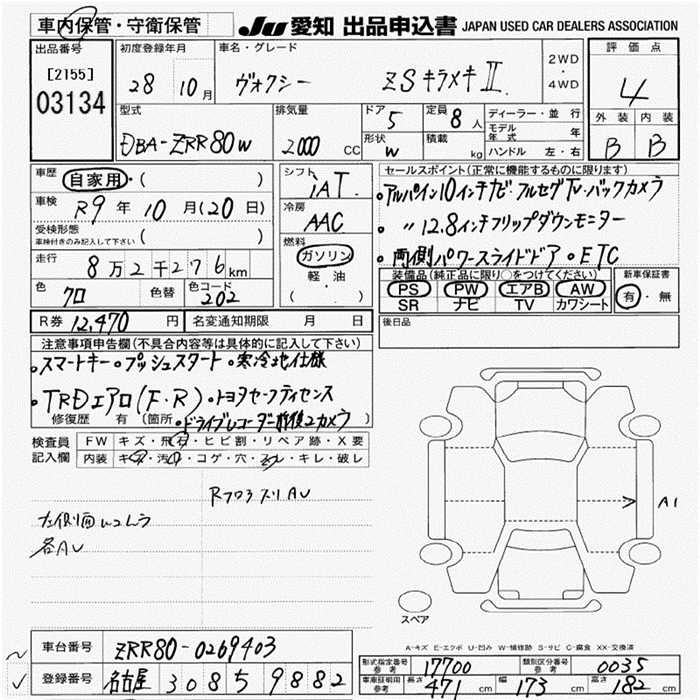 車内保管・守衛保管
JU 愛知 出品申込書 JAPAN USED CAR DEALERS ASSOCIATION
出品番号 [2155] 03134
初度登録年月 28 10月
車名・グレード ヴォクシー ZSキラメキⅡ
2WD・4WD
評価点 4
外装 内装
B B
型式 DBA-ZRR80W
排気量 2000 CC
ドア 5
定員 8人
形状 W
積載 kg
ディーラー・並行
モデル年式 年
ハンドル 左・右
車歴 自家用・( )
車検 R9年10月(20日)
受検形態 車検付きのみ記入して下さい ( )
走行 8万2千276km
色 クロ 色替 色コード 202
シフト IAT
冷房 AAC
燃料 ガソリン 軽・油 ( )
セールスポイント(正常に機能するものに限ります)
・アルパイン10インチナビ・フルセグTV・バックカメラ
・〃12.8インチフリップダウンモニター
・両側パワースライドドア・ETC
装備品(純正品に限り○をつけてください)
PS PW エアB AW
SR ナビ TV カワシート
新車保証書 有・無
R券 12,470円 名変通知期限 月 日
後日品
注意事項申告欄(不具合内容等は具体的に記入して下さい)
・スマートキー・プッシュスタート・寒冷地仕様
・TRDエアロ(F・R)・トヨタセーフティセンス
修復歴 有(箇所 ・ドライブレコーダー前後2カメラ
検査員記入欄
FW キズ・飛石・ヒビ割・リペア跡・X要
内装 キズ・汚れ・コゲ・穴・スレ・キレ・破レ
左側面
各AU
A1
スペア
A-キズ E-エクボ U-凹み W-補修跡 S-サビ C-腐食 XX-交換済
車台番号 ZRR80-0269403
登録番号 名古屋 308 5 9882
形式指定番号 参考 17700 類別区分番号 参考 0035
車庫証明用 参考 長さ 471cm 幅 173cm 高さ 182cm